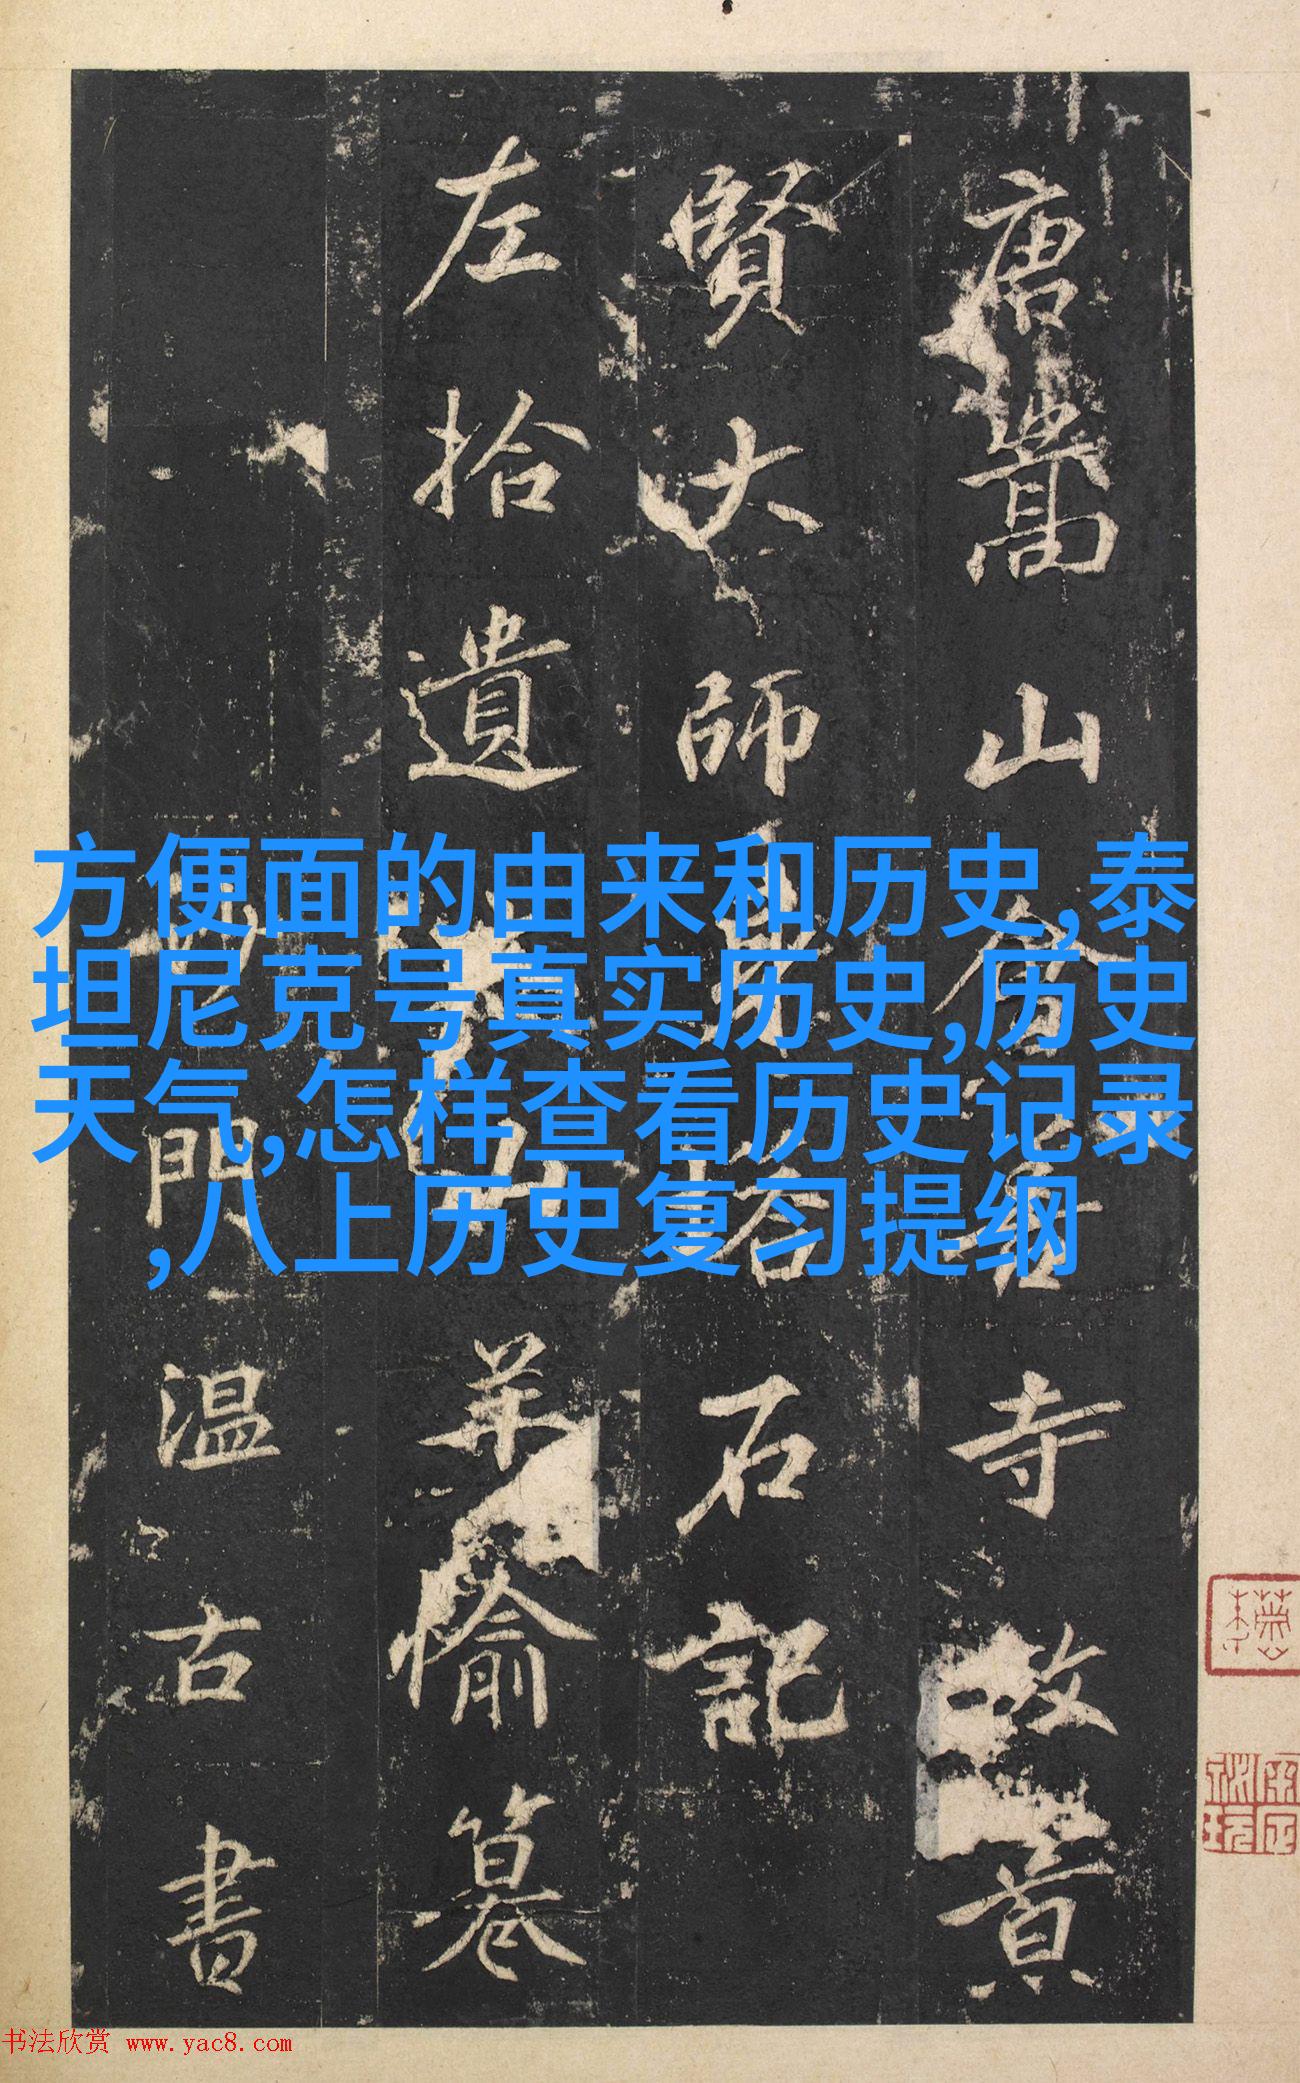 唐嵩山會善寺故景
賢大師身塔石記
左拾遺山羊愉纂
沙門溫古書
方便面的由来和历史,泰
坦尼克号真实历史,历史
天气,怎样查看历史记录
,八上历史复习提纲
书法欣赏 www.yac8.com